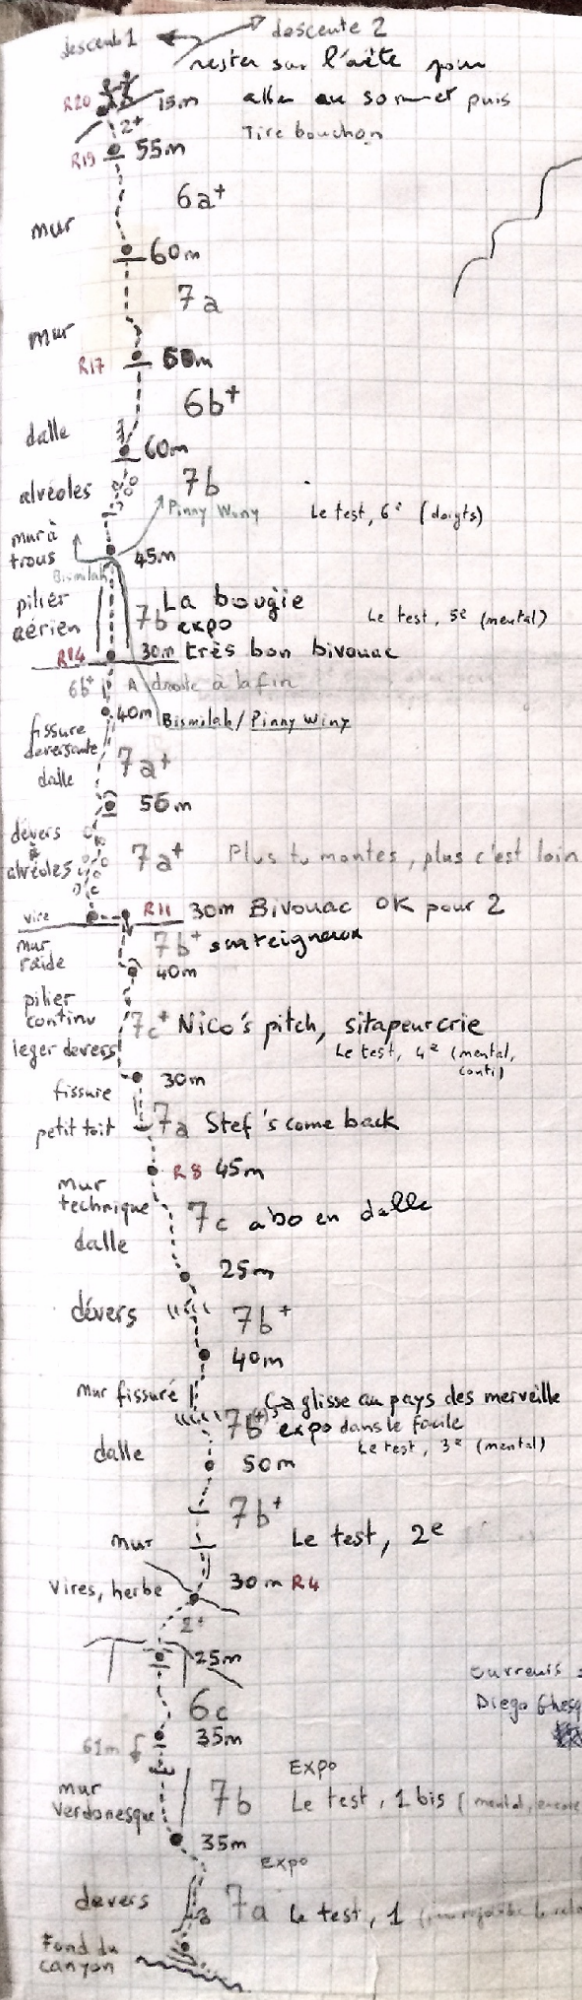 descente 1 descente 2
rester sur l'arête pour
R20 15m aller au sommet puis
2+ Tire bouchon
R19 55m
6a+
mur
60m
7a
mur
R17 55m
6b+
dalle
60m
alvéoles 7b
Pinny Winy Le test, 6e (doigts)
mur à
trous 45m
Bismilah
pilier La bougie
aérien 7b expo Le test, 5e (mental)
R14 30m très bon bivouac
6b+ A droite à la fin
40m Bismilah / Pinny Winy
fissure
deversante 7a+
dalle
50m
dévers
à
alvéoles 7a+ Plus tu montes, plus c'est loin
vire R11 30m Bivouac OK pour 2
mur 7b+ surteigneux
raide
40m
pilier
continu 7c+ Nico's pitch, sitapeurcrie
leger devers Le test, 4e (mental,
conti)
30m
fissure
petit toit 7a Stef's come back
R8 45m
mur
technique 7c abo en dalle
dalle
25m
dévers 7b+
40m
mur fissuré Ça glisse au pays des merveille
7b(+) expo dans le facile
dalle Le test, 3e (mental)
50m
7b+
mur Le test, 2e
Vires, herbe 30m R4
2+
25m
6c Diego
35m
61m
Expo
mur
Verdonesque 7b Le test, 1 bis (mental, encore
35m
Expo
devers 7a Le test, 1
Fond du
canyon